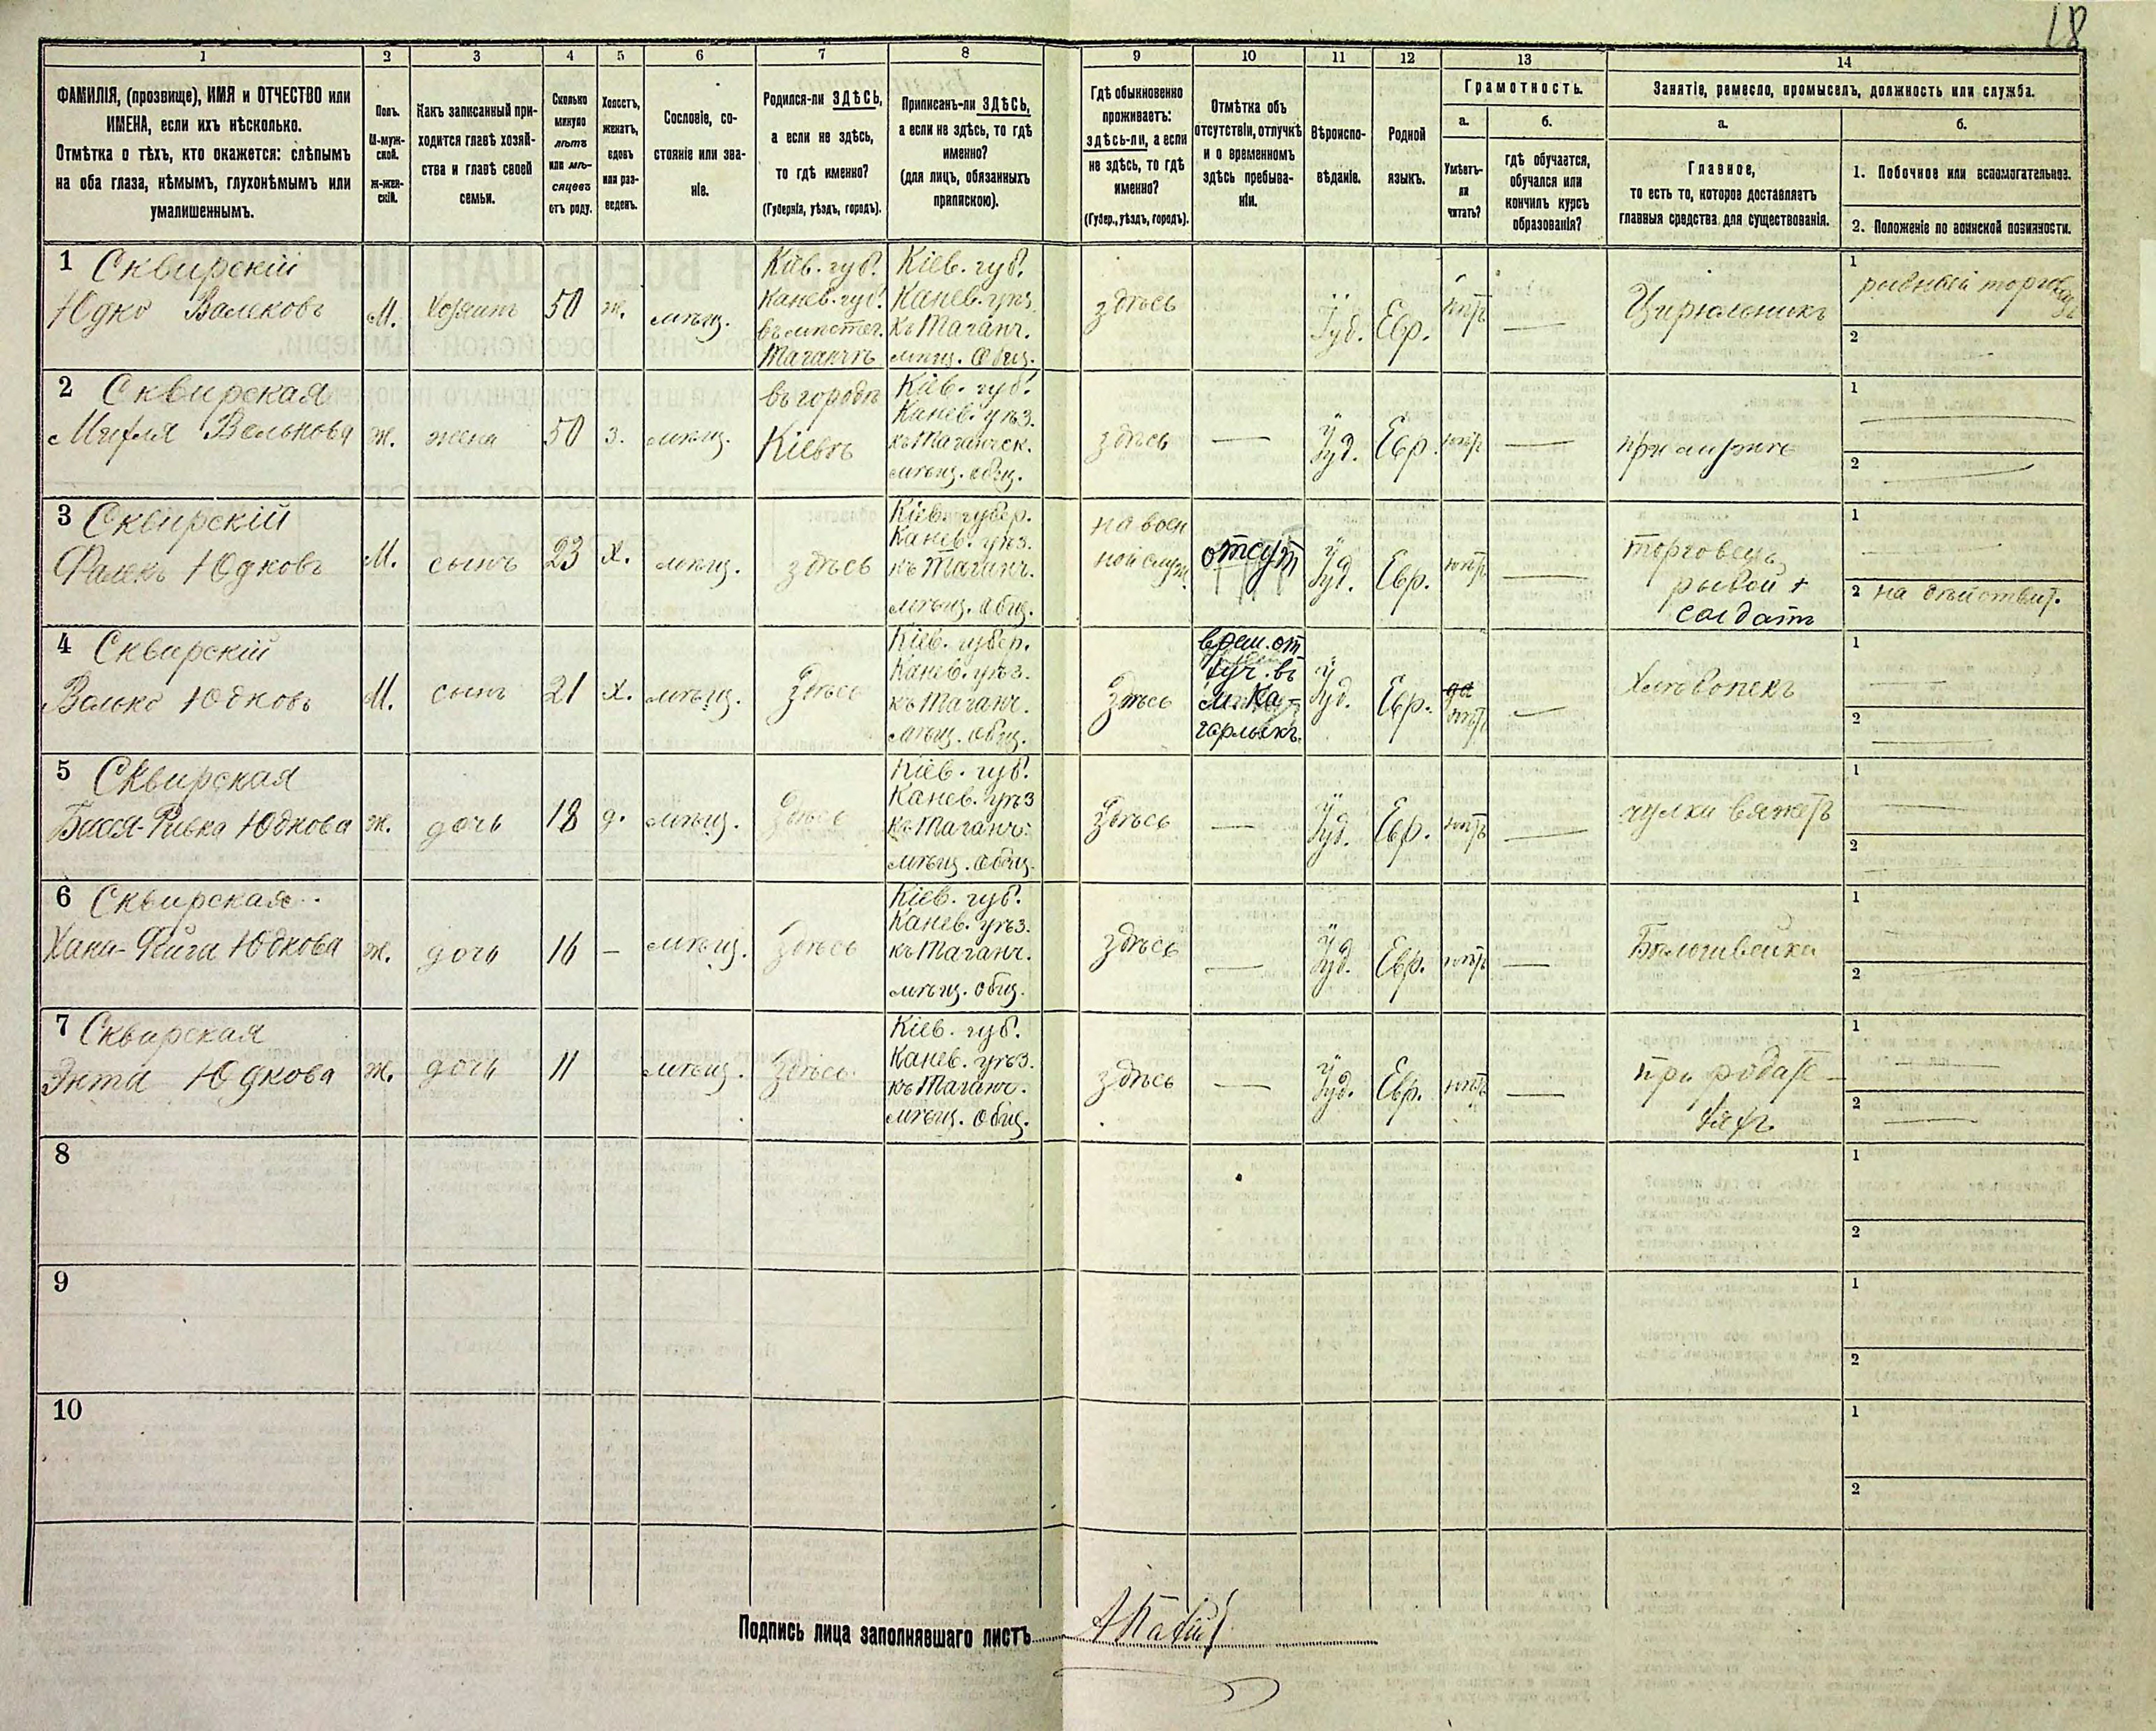 18
1
2
3
4
5
6
7
8
9
10
11
12
13
14
ФАМИЛІЯ, (прозвище), ИМЯ и ОТЧЕСТВО или
ИМЕНА, если ихъ нѣсколько.
Отмѣтка о тѣхъ, кто окажется: слѣпымъ
на оба глаза, нѣмымъ, глухонѣмымъ или
умалишеннымъ.
Полъ.
М-муж-
ской.
Ж-жен-
скій.
Какъ записанный при-
ходится главѣ хозяй-
ства и главѣ своей
семьи.
Сколько
минуло
лѣтъ
или мѣ-
сяцевъ
отъ роду.
Холостъ,
женатъ,
вдовъ
или раз-
веденъ.
Сословіе, со-
стояніе или зва-
ніе.
Родился-ли ЗДѢСЬ,
а если не здѣсь,
то гдѣ именно?
(Губернія, уѣздъ, городъ).
Приписанъ-ли ЗДѢСЬ,
а если не здѣсь, то гдѣ
именно?
(для лицъ, обязанныхъ
припискою).
Гдѣ обыкновенно
проживаетъ:
здѣсь-ли, а если
не здѣсь, то гдѣ
именно?
(Губер., уѣздъ, городъ).
Отмѣтка объ
отсутствіи, отлучкѣ
и о временномъ
здѣсь пребыва-
ніи.
Вѣроиспо-
вѣданіе.
Родной
языкъ.
Грамотность.
а.
Умѣетъ-
ли
читать?
б.
гдѣ обучается,
обучался или
кончилъ курсъ
образованія?
Занятіе, ремесло, промыселъ, должность или служба.
а.
Главное,
то есть то, которое доставляетъ
главныя средства для существованія.
б.
1. Побочное или вспомогательное.
2. Положеніе по воинской повинности.
1 Сквирскій
Юдко Валековъ
М.
Хозяинъ
50
ж.
мѣщ.
Кіев. губ.
Канев. губ.
въ мѣстеч.
Таганчѣ
Кіев. губ.
Канев. уѣз.
къ Таганч.
мѣщ. Общ.
здѣсь
Іуд.
Евр.
нѣтъ
—
Цирюльникъ
1
рыбный торгов
2
2 Сквирская
Вельнова
ж.
жена
50
з.
мѣщ.
въ городѣ
Кіевѣ
Кіев. губ.
Канев. уѣз.
къ Таганческ.
мѣщ. общ.
здѣсь
—
Іуд.
Евр.
нѣтъ
—
при мужѣ
1
2
3 Сквирскій
Фалекъ Юдковъ
М.
сынъ
23
х.
мѣщ.
здѣсь
Кіев. губер.
Канев. уѣз.
къ Таганч.
мѣщ. Общ.
на воен
ной служ.
отсут
Іуд.
Евр.
нѣтъ
—
торговецъ
рыбой +
солдатъ
1
2 на дѣйствит.
4 Сквирскій
Волько Юдковъ
М.
сынъ
21
х.
мѣщ.
Здѣсь
Кіев. губер.
Канев. уѣз.
къ Таганч.
мѣщ. общ.
Здѣсь
врем. от
луч. въ
м. Ка-
гарлыкъ.
Іуд.
Евр.
да
нѣтъ
—
Хлѣбопекъ
1
2
5 Сквирская
Бася-Ривка Юдкова
ж.
дочь
18
д.
мѣщ.
Здѣсь
Кіев. губ.
Канев. уѣз
къ Таганч.
мѣщ. Общ.
Здѣсь
—
Іуд.
Евр.
нѣтъ
—
чулки вяжетъ
1
2
6 Сквирская
Хана-Фейга Юдкова
ж.
дочь
16
—
мѣщ.
Здѣсь
Кіев. губ.
Канев. уѣз.
къ Таганч.
мѣщ. общ.
здѣсь
—
Іуд.
Евр.
нѣтъ
—
Бѣлошвейка
1
2
7 Сквирская
Энта Юдкова
ж.
дочь
11
мѣщ.
Здѣсь
Кіев. губ.
Канев. уѣз.
къ Таганч.
мѣщ. Общ.
здѣсь
—
Іуд.
Евр.
нѣтъ
—
при родите-
ляхъ
1
2
8
1
2
9
1
2
10
1
2
Подпись лица заполнявшаго листъ